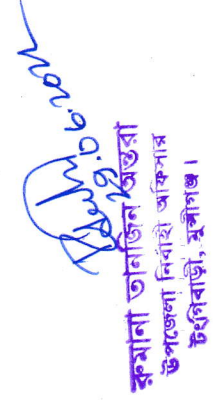 রুমানা তানজিন অন্তরা
উপজেলা নির্বাহী অফিসার
টংগিবাড়ী, মুন্সীগঞ্জ।